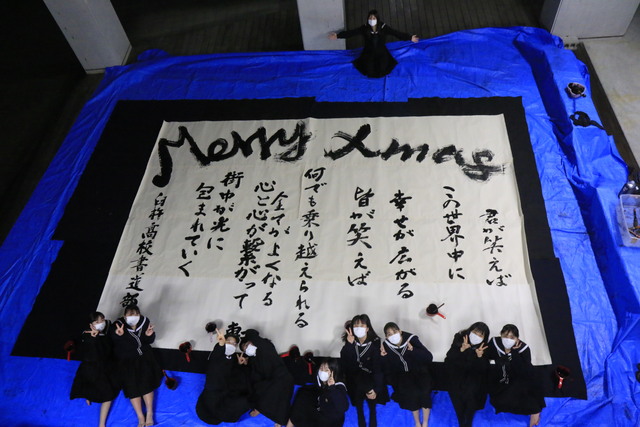 Merry Xmas
君が笑えば
この世界中に
幸せが広がる
皆が笑えば
何でも乗り越えられる
全てが上くなる
心と心が繋がって
街中が光に
包まれていく
臼杵高校書道部